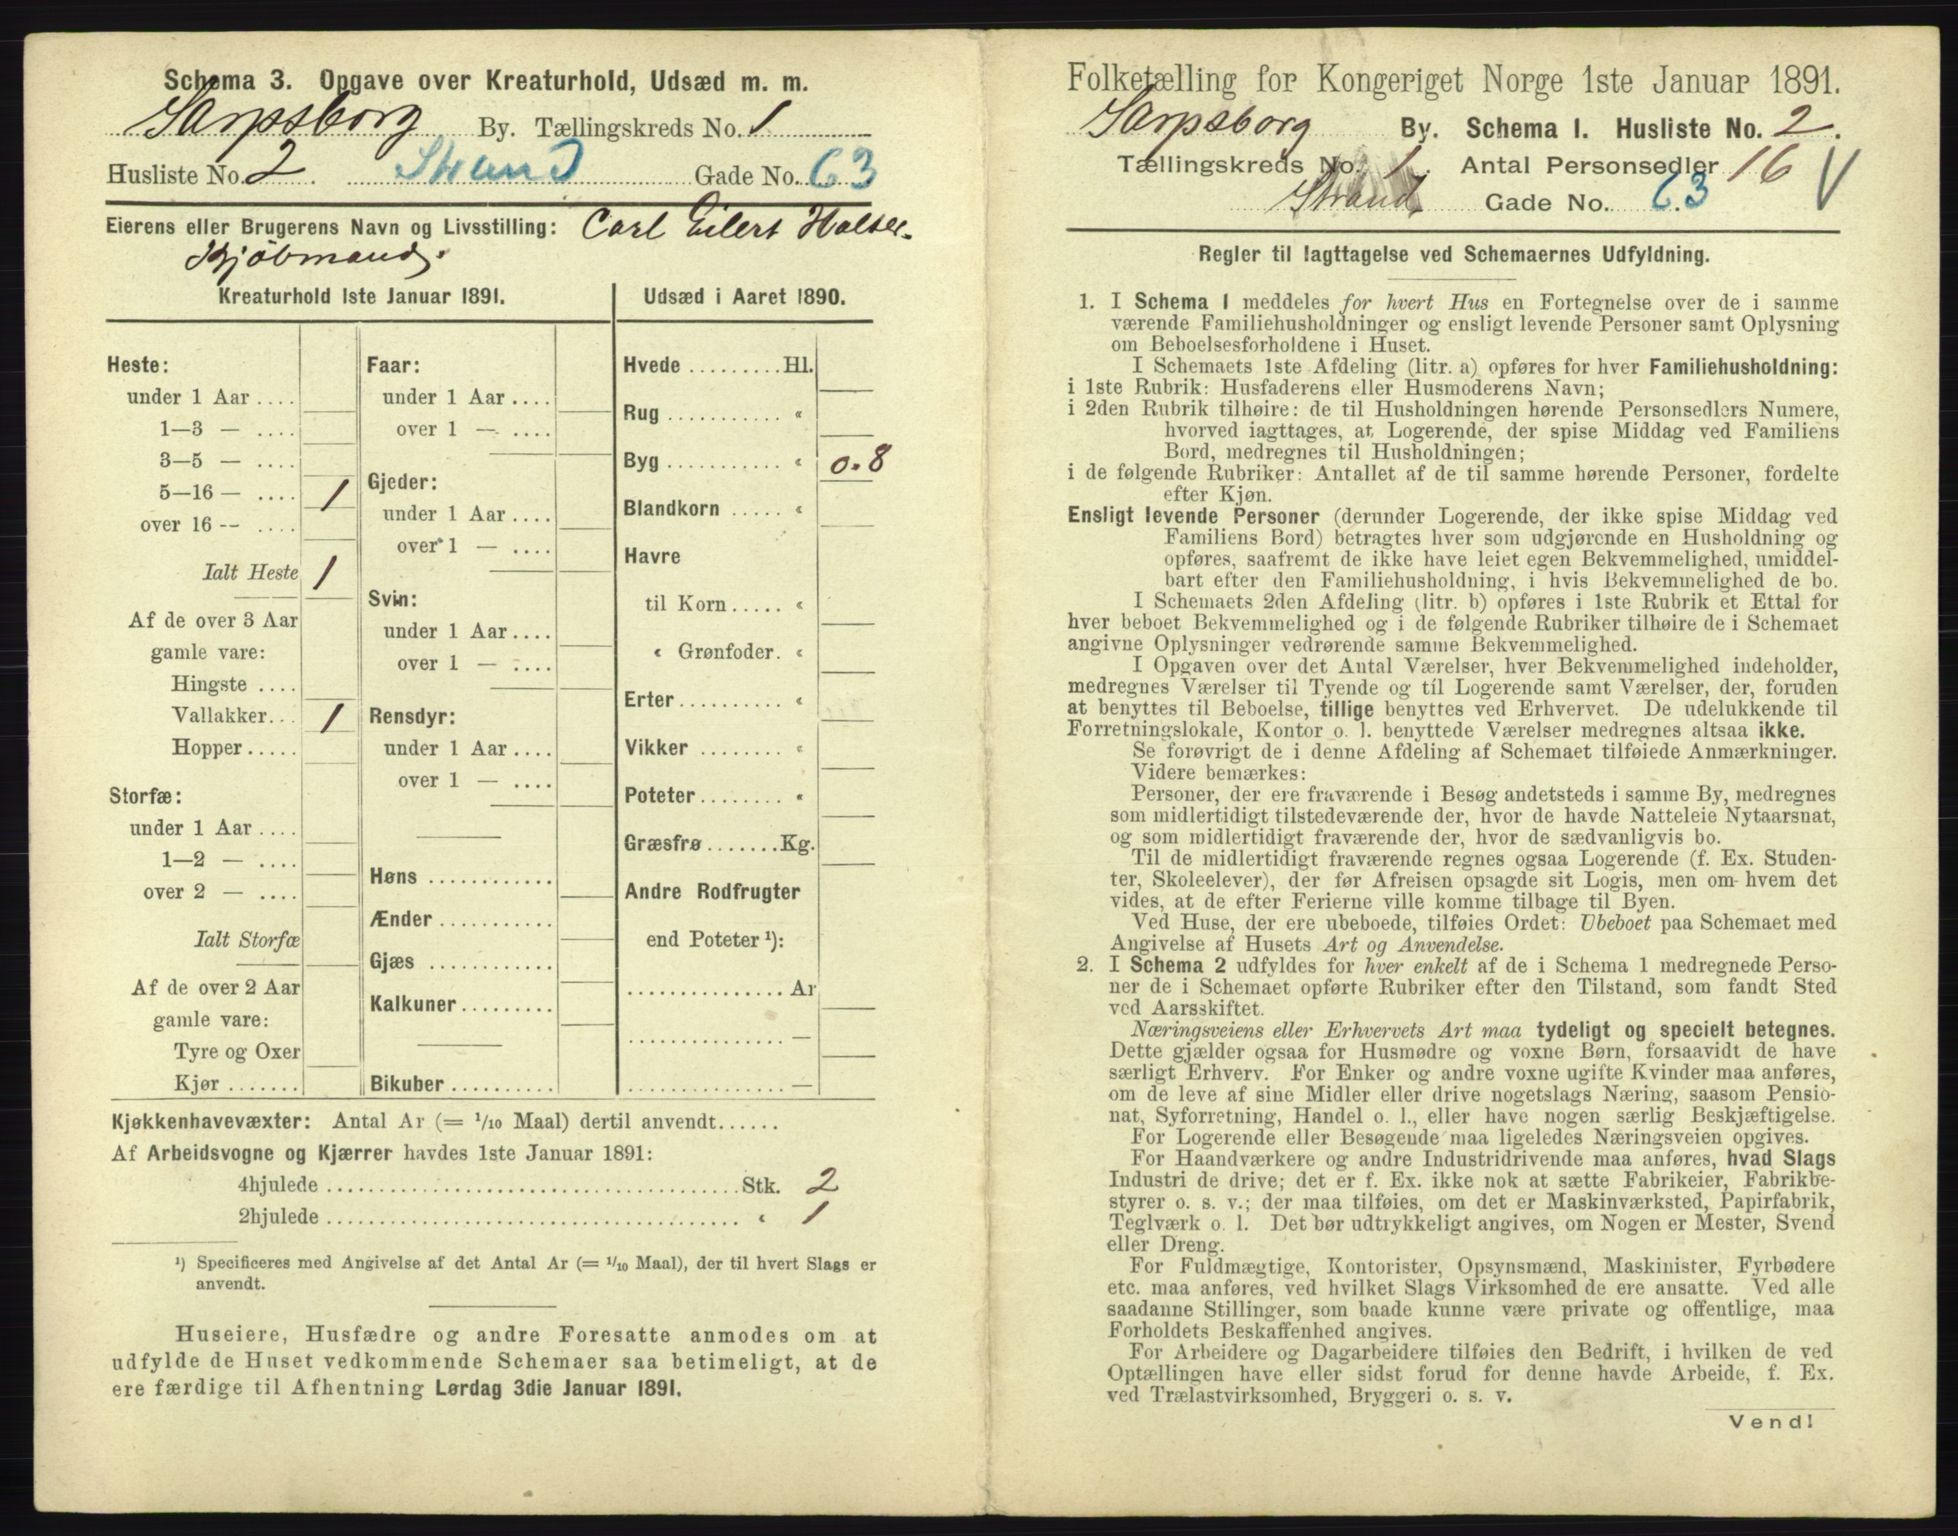 Schema 3. Opgave over Kreaturhold, Udsæd m. m.
Sarpsborg By. Tællingskreds No. 1
Husliste No. 2. Strand Gade No. 63
Eierens eller Brugerens Navn og Livsstilling: Carl Eilert
Kjøbmand.
Kreaturhold 1ste Januar 1891.
Heste:
under 1 Aar ....
1—3 — ....
3—5 — ....
5—16 — .... 1
over 16 -- ....
Ialt Heste 1
Af de over 3 Aar
gamle vare:
Hingste ....
Vallakker... 1
Hopper.....
Storfæ:
under 1 Aar ....
1—2 — ....
over 2 — ....
Ialt Storfæ
Af de over 2 Aar
gamle vare:
Tyre og Oxer
Kjør .......
Faar:
under 1 Aar ....
over 1 — ....
Gjeder:
under 1 Aar ....
over 1 — ....
Svin:
under 1 Aar ....
over 1 — ....
Rensdyr:
under 1 Aar ....
over 1 — ....
Høns ............
Ænder ...........
Gjæs ............
Kalkuner.........
Bikuber ..........
Udsæd i Aaret 1890.
Hvede .........Hl.
Rug ........... «
Byg ........... « 0.8
Blandkorn ..... «
Havre
til Korn..... «
« Grønfoder. «
Erter.......... «
Vikker ........ «
Poteter........ «
Græsfrø.......Kg.
Andre Rodfrugter
end Poteter ¹):
...............Ar
............... —
............... —
Kjøkkenhavevæxter: Antal Ar (= 1/10 Maal) dertil anvendt......
Af Arbeidsvogne og Kjærrer havdes 1ste Januar 1891:
4hjulede ........................................Stk. 2
2hjulede ........................................ « 1
¹) Specificeres med Angivelse af det Antal Ar (= 1/10 Maal), der til hvert Slags er
anvendt.
Huseiere, Husfædre og andre Foresatte anmodes om at
udfylde de Huset vedkommende Schemaer saa betimeligt, at de
ere færdige til Afhentning Lørdag 3die Januar 1891.
Folketælling for Kongeriget Norge 1ste Januar 1891.
Sarpsborg By. Schema I. Husliste No. 2.
Tællingskreds No. 1. Antal Personsedler 16 V
Strand Gade No. 63
Regler til Iagttagelse ved Schemaernes Udfyldning.
1. I Schema 1 meddeles for hvert Hus en Fortegnelse over de i samme
værende Familiehusholdninger og ensligt levende Personer samt Oplysning
om Beboelsesforholdene i Huset.
I Schemaets 1ste Afdeling (litr. a) opføres for hver Familiehusholdning:
i 1ste Rubrik: Husfaderens eller Husmoderens Navn;
i 2den Rubrik tilhøire: de til Husholdningen hørende Personsedlers Numere,
hvorved iagttages, at Logerende, der spise Middag ved Familiens
Bord, medregnes til Husholdningen;
i de følgende Rubriker: Antallet af de til samme hørende Personer, fordelte
efter Kjøn.
Ensligt levende Personer (derunder Logerende, der ikke spise Middag ved
Familiens Bord) betragtes hver som udgjørende en Husholdning og
opføres, saafremt de ikke have leiet egen Bekvemmelighed, umiddel-
bart efter den Familiehusholdning, i hvis Bekvemmelighed de bo.
I Schemaets 2den Afdeling (litr. b) opføres i 1ste Rubrik et Ettal for
hver beboet Bekvemmelighed og i de følgende Rubriker tilhøire de i Schemaet
angivne Oplysninger vedrørende samme Bekvemmelighed.
I Opgaven over det Antal Værelser, hver Bekvemmelighed indeholder,
medregnes Værelser til Tyende og til Logerende samt Værelser, der, foruden
at benyttes til Beboelse, tillige benyttes ved Erhvervet. De udelukkende til
Forretningslokale, Kontor o. l. benyttede Værelser medregnes altsaa ikke.
Se forøvrigt de i denne Afdeling af Schemaet tilføiede Anmærkninger.
Videre bemærkes:
Personer, der ere fraværende i Besøg andetsteds i samme By, medregnes
som midlertidigt tilstedeværende der, hvor de havde Natteleie Nytaarsnat,
og som midlertidigt fraværende der, hvor de sædvanligvis bo.
Til de midlertidigt fraværende regnes ogsaa Logerende (f. Ex. Studen-
ter, Skoleelever), der før Afreisen opsagde sit Logis, men om hvem det
vides, at de efter Ferierne ville komme tilbage til Byen.
Ved Huse, der ere ubeboede, tilføies Ordet: Ubeboet paa Schemaet med
Angivelse af Husets Art og Anvendelse.
2. I Schema 2 udfyldes for hver enkelt af de i Schema 1 medregnede Perso-
ner de i Schemaet opførte Rubriker efter den Tilstand, som fandt Sted
ved Aarsskiftet.
Næringsveiens eller Erhvervets Art maa tydeligt og specielt betegnes.
Dette gjælder ogsaa for Husmødre og voxne Børn, forsaavidt de have
særligt Erhverv. For Enker og andre voxne ugifte Kvinder maa anføres,
om de leve af sine Midler eller drive nogetslags Næring, saasom Pensio-
nat, Syforretning, Handel o. l., eller have nogen særlig Beskjæftigelse.
For Logerende eller Besøgende maa ligeledes Næringsveien opgives.
For Haandværkere og andre Industridrivende maa anføres, hvad Slags
Industri de drive; det er f. Ex. ikke nok at sætte Fabrikeier, Fabrikbe-
styrer o. s. v.; der maa tilføies, om det er Maskinværksted, Papirfabrik,
Teglværk o. l. Det bør udtrykkeligt angives, om Nogen er Mester, Svend
eller Dreng.
For Fuldmægtige, Kontorister, Opsynsmænd, Maskinister, Fyrbødere
etc. maa anføres, ved hvilket Slags Virksomhed de ere ansatte. Ved alle
saadanne Stillinger, som baade kunne være private og offentlige, maa
Forholdets Beskaffenhed angives.
For Arbeidere og Dagarbeidere tilføies den Bedrift, i hvilken de ved
Optællingen have eller sidst forud for denne havde Arbeide, f. Ex.
ved Trælastvirksomhed, Bryggeri o. s. v.
Vend!